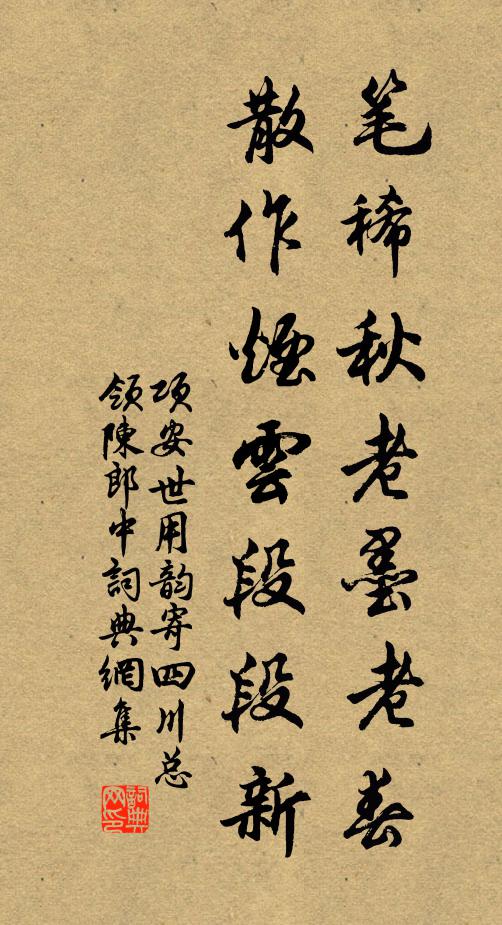 笔稀秋老墨老春
散作烟雲段段新
项安世用韵寄四川总
领陳郎中詞典網集
詞典網印